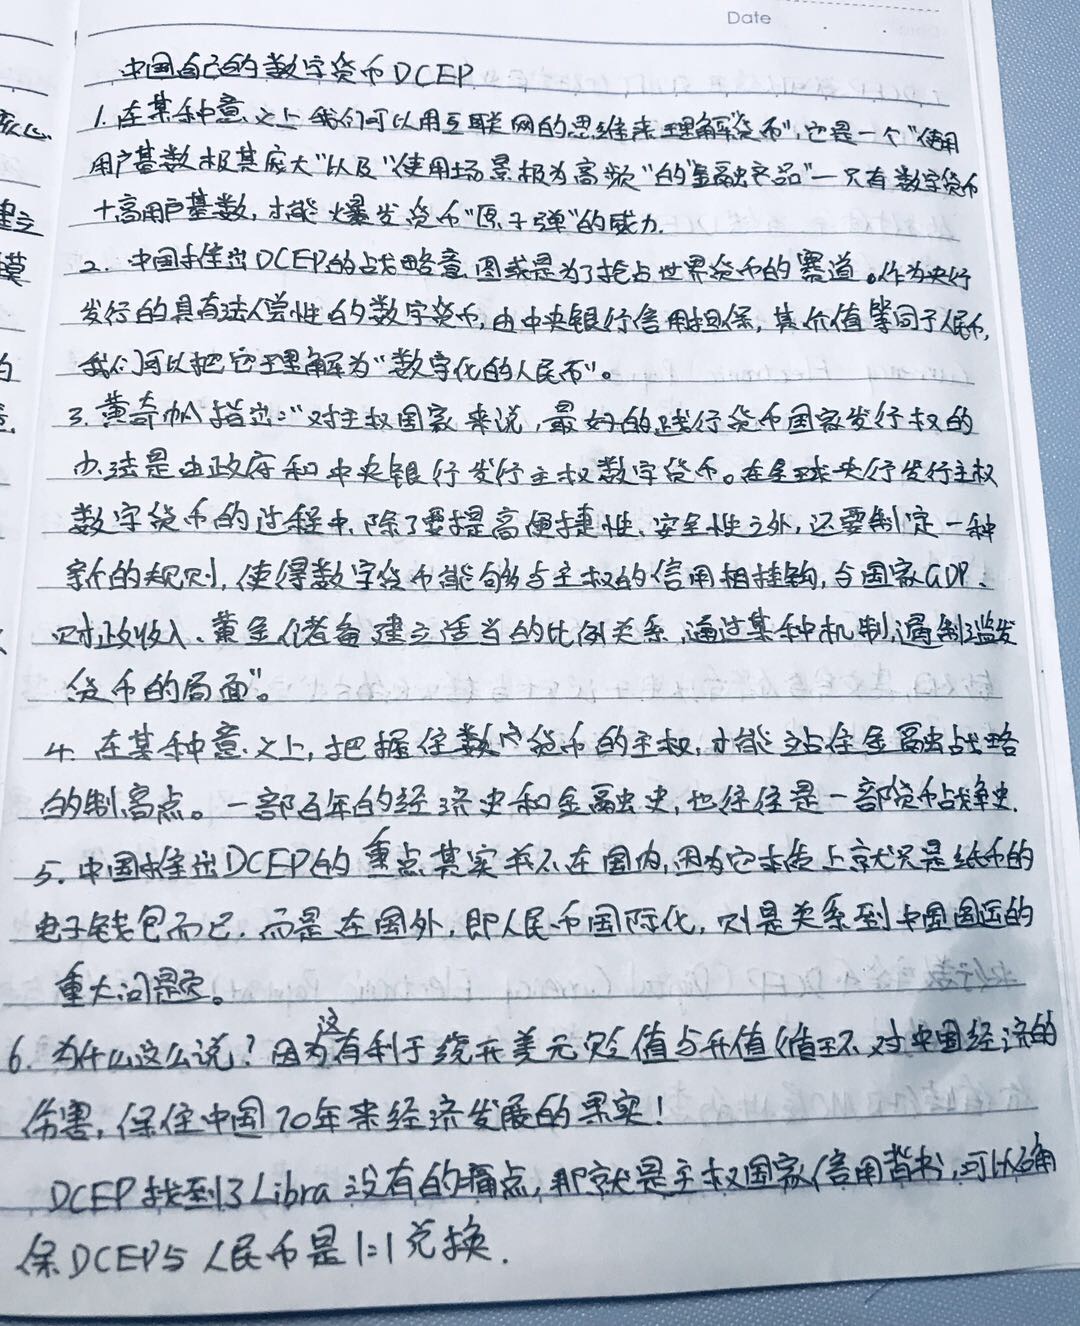 Date
中国自己的数字货币DCEP
1. 在某种意义上我们可以用互联网的思维来理解货币",它是一个"使用
用户基数极其庞大"以及"使用场景极为高频"的"金融产品"一只有数字货币
十高用户基数,才能爆发货币"原子弹"的威力.
2. 中国推出DCEP的战略意图或是为了抢占世界货币的赛道。作为央行
发行的具有法偿性的数字货币,由中央银行信用担保,其价值等同于人民币,
我们可以把它理解为"数字化的人民币"。
3. 黄奇帆指出:"对主权国家来说,最好的践行货币国家发行权的
办法是由政府和中央银行发行主权数字货币。在全球央行发行主权
数字货币的过程中,除了要提高便捷性、安全性之外,还要制定一种
新的规则,使得数字货币能够与主权的信用相挂钩,与国家GDP、
财政收入、黄金储备建立适当的比例关系,通过某种机制,遏制滥发
货币的局面"。
4. 在某种意义上,把握住数字货币的主权,才能站住金融战略
的制高点。一部百年的经济史和金融史,也往往是一部货币战争史.
5. 中国推出DCEP的重点其实并不在国内,因为它本质上就只是纸币的
电子钱包而已,而是在国外,即人民币国际化,则是关系到中国国运的
重大问题。
6. 为什么这么说?因为这有利于绕开美元贬值与升值循环对中国经济的
伤害,保住中国70年来经济发展的果实!
DCEP找到了Libra没有的痛点,那就是主权国家信用背书,可以确
保DCEP与人民币是1:1兑换.